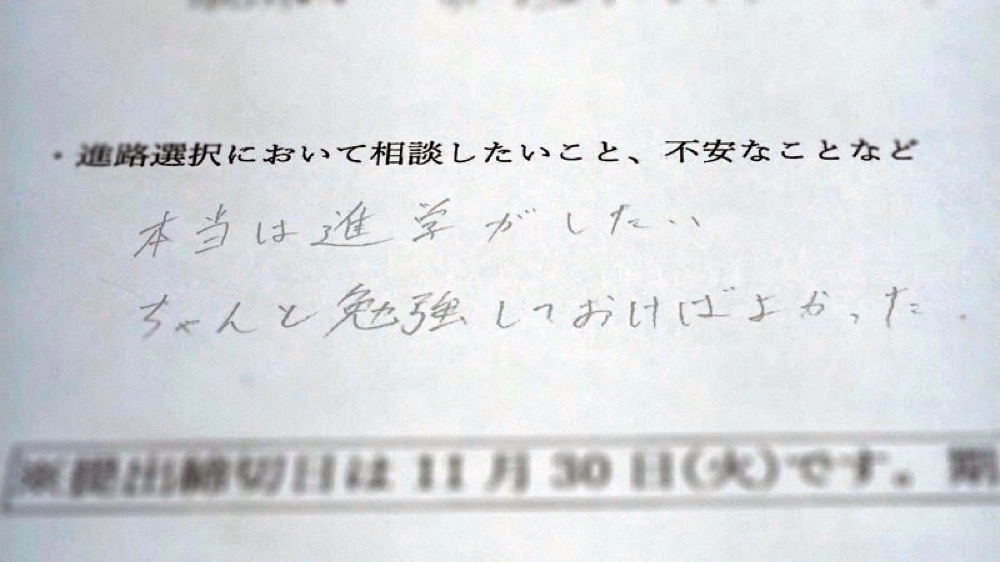 ・進路選択において相談したいこと、不安なことなど
本当は進学がしたい
ちゃんと勉強しておけばよかった.
※提出締切日は11月30日(火)です。期